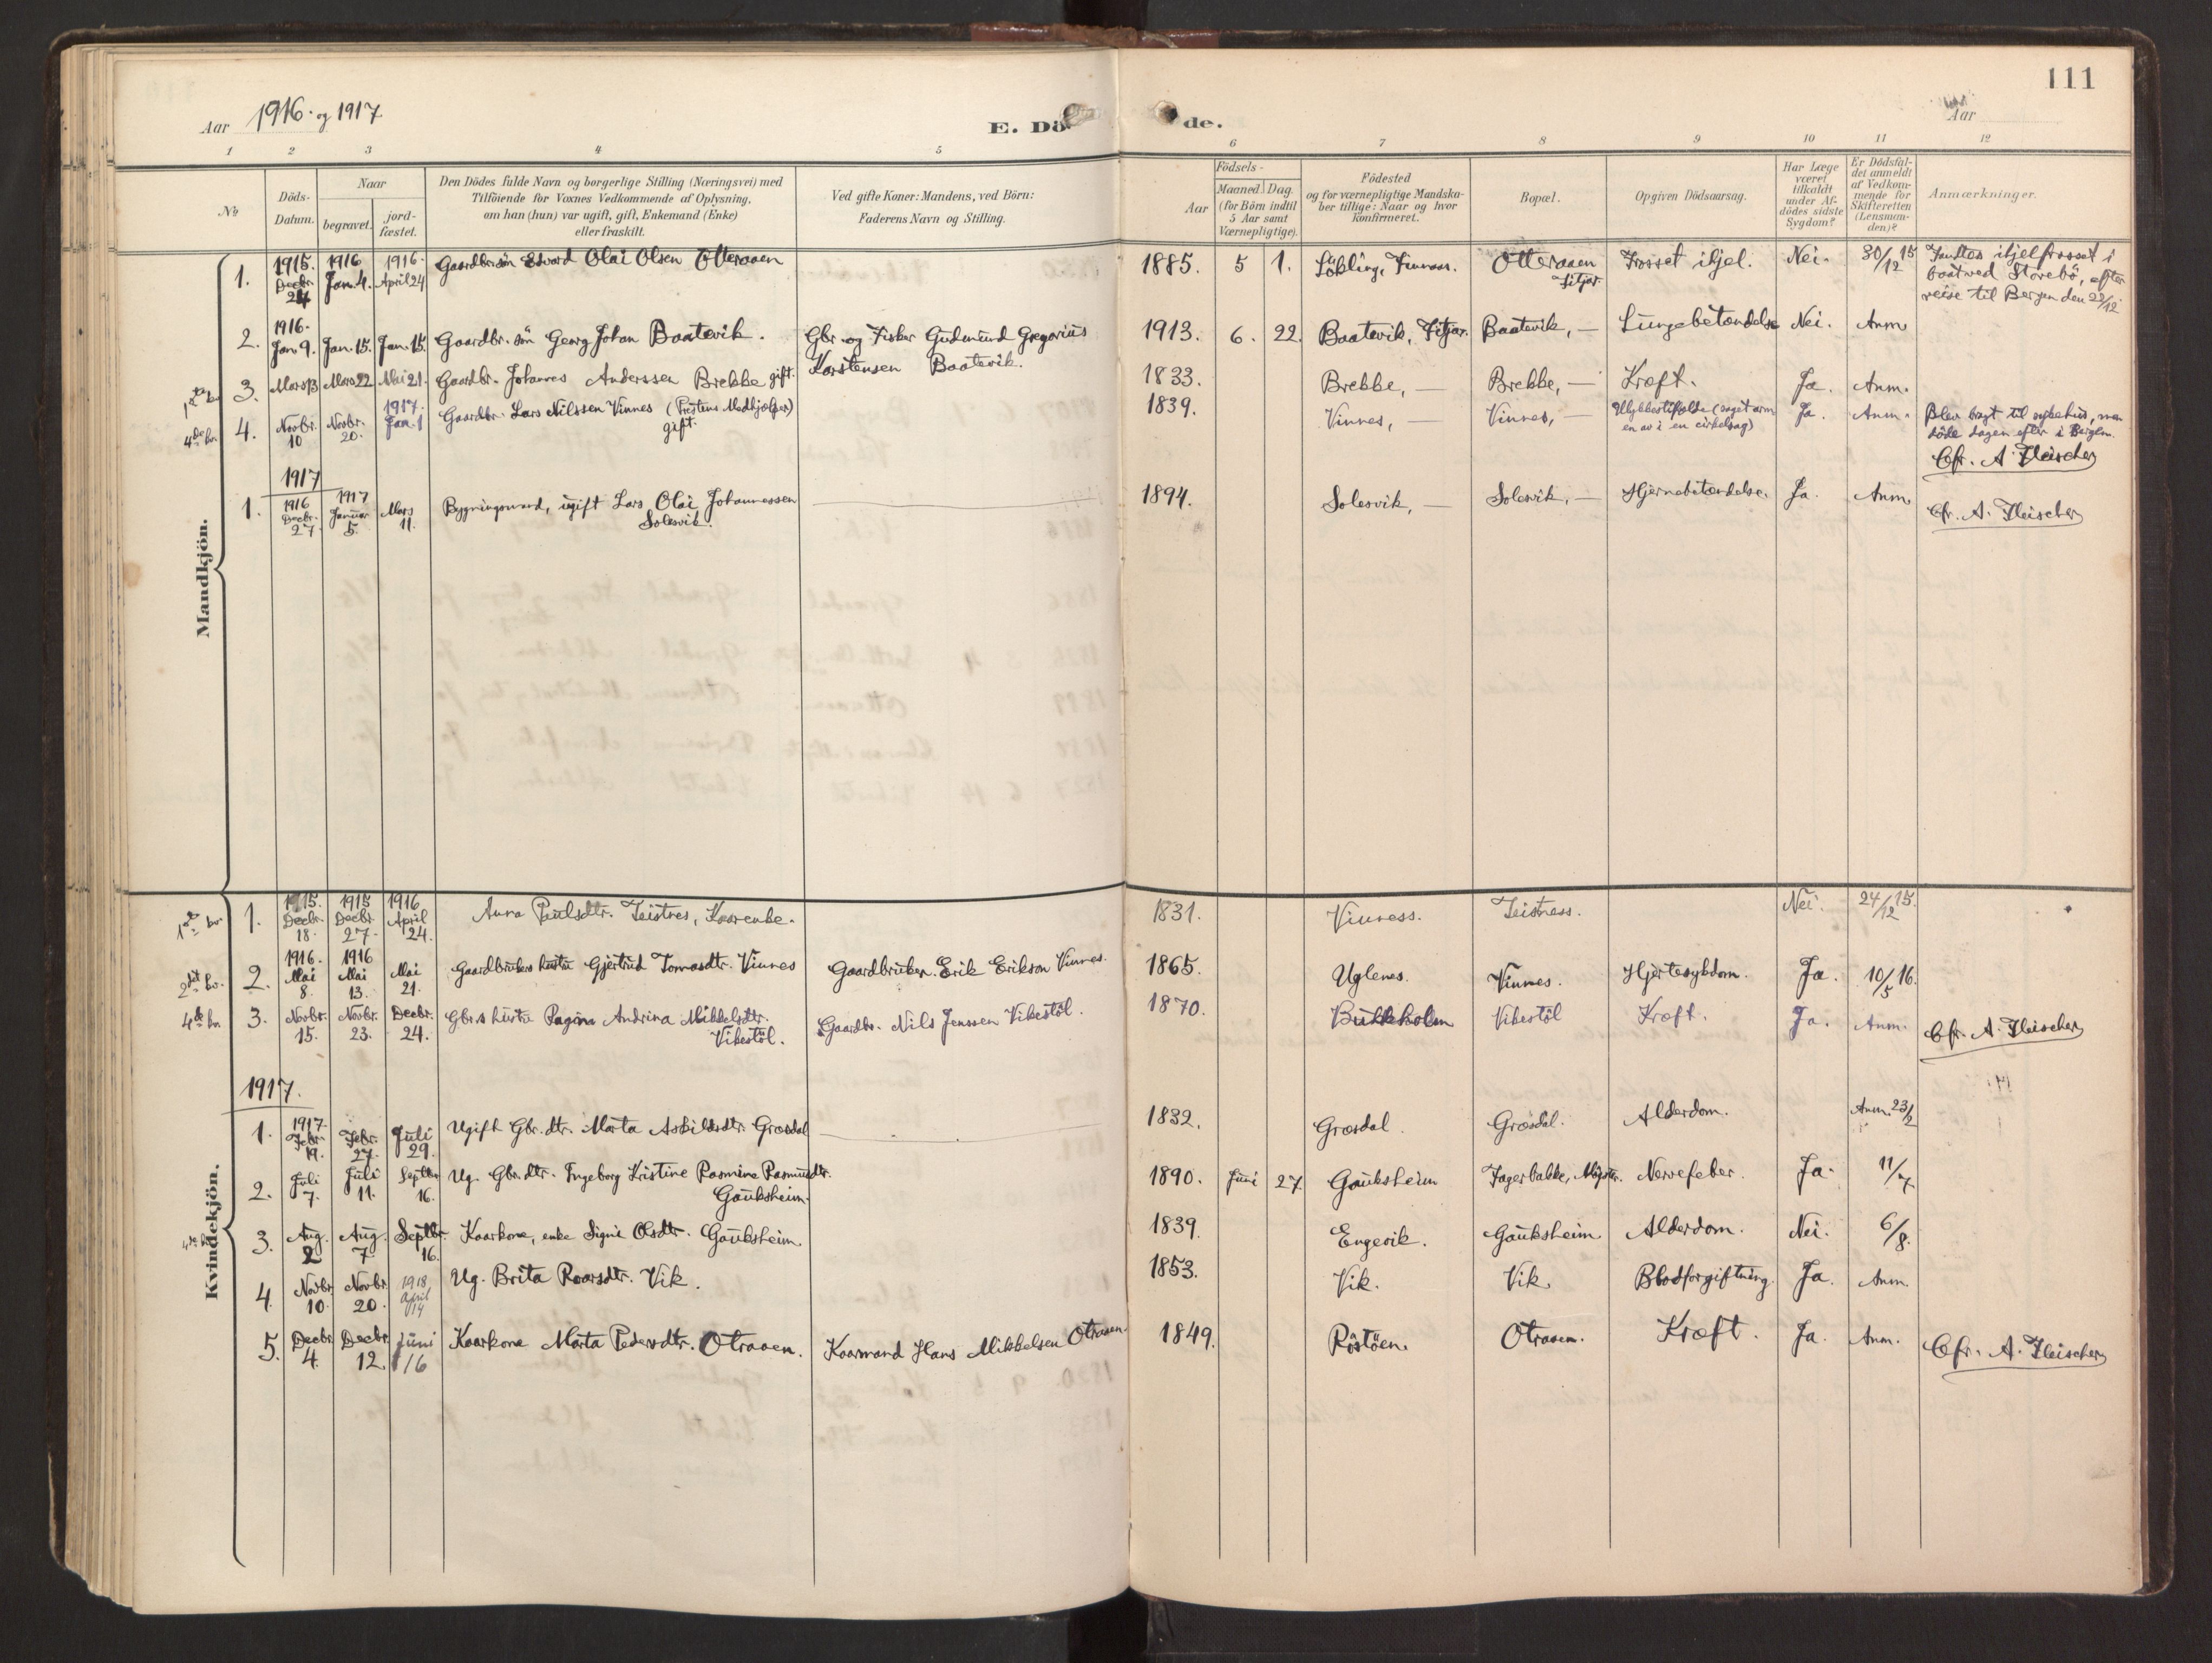 111
Aar 1916. og 1917
E. Dö
de.
Aar
1 2 3 4 5 6 7 8 9 10 11 12
No
Döds-Datum.
Naar
begravet.
jord-fæstet.
Den Dödes fulde Navn og borgerlige Stilling (Næringsvei) med
Tilföiende for Voxnes Vedkommende af Oplysning,
om han (hun) var ugift, gift, Enkemand (Enke)
eller fraskilt.
Ved gifte Koner: Mandens, ved Börn:
Faderens Navn og Stilling.
Aar
Födsels-
Maaned. Dag.
(for Börn indtil
5 Aar samt
Værnepligtige).
Födested
og for værnepligtige Mandska-
ber tillige: Naar og hvor
Konfirmeret.
Bopæl.
Opgiven Dödsaarsag.
Har Læge
været
tilkaldt
under Af-
dödes sidste
Sygdom?
Er Dödsfal-
det anmeldt
af Vedkom-
mende for
Skifteretten
(Lensman-
den)?
Anmærkninger.
Mandkjön.
1. 1915. Decbr. 1916 Jan. 4. 1916. April 24 Gaardbr. sön Edvard Olai Olsen Otteraaen 1885. 5 1. Lökling, Finnaas. Otteraaen Fitjar. Frosset ihjel. Nei. 30/12 15 Fandtes ihjelfrosset i
baat ved Storebö, efter
reise til Bergen den 22/12
2. 1916. Jan. 9. Jan. 15. Jan. 15. Gaardbr. sön Georg Johan Baatevik. Gbr. og Fisker Gudmund Gregorius
Karstensen Baatevik. 1913. 6. 22. Baatevik, Fitjar. Baatevik, — Lungebetændelse Nei. Anm
3. Mars 13 Mars 22 Mai 21. Gaardbr. Johannes Anderssen Brekke gift. 1833. Brekke, — Brekke, — Kræft. Ja. Anm.
4de kv. 4. Novbr. 10 Novbr. 20. 1917. Jan. 1 Gaardbr. Lars Nilssen Vinnes (Prestens Medhjælper)
gift. 1839. Vinnes, — Vinnes, — Ulykkestilfælde (saget arm
en av i en cirkelsag) Ja. Anm. Blev bragt til sykehus, men
döde dagen efter i Bergen.
Cfr. A. Fleischer
1917
1. 1916 Decbr. 27. 1917 Januar 5. Mars 11. Bygningsmand, ugift Lars Olai Johannessen
Solesvik. 1894. Solesvik, — Solesvik, — Hjernebetændelse. Ja. Anm. Cfr. A. Fleischer
Kvindekjön.
1ste kv. 1. 1915. Decbr. 18. 1915 Decbr. 27. 1916 April 24. Anna Paulsdtr. Teistnes, Kaarenke. 1831. Vinness. Teistness. Nei. 24/12 15.
2det kv. 2. 1916. Mai 8. 1916 Mai 13. Mai 21. Gaardbrukers hustru Gjertrud Tomasdtr. Vinnes Gaardbruker. Erik Erikson Vinnes. 1865. Uglenes. Vinnes. Hjertesykdom. Ja. 10/5 16.
4de kv. 3. Novbr. 15. Novbr. 23. Decbr. 24. Gbr.s hustru Ragina Andrina Mikkelsdtr.
Vikestöl. Gaardbr. Nils Jenssen Vikestöl. 1870. Bukkholm Vikestöl Kræft. Ja. Anm. Cfr. A. Fleischer
1917.
1. 1917. Febr. 19. Febr. 27. Juli 29. Ugift Gbr. dtr. Marta Askildsdtr. Grosdal 1832. Grosdal. Grosdal. Alderdom. Anm. 23/2
2. Juli 7. Juli 11. Septbr. 16. Ug. Gbr. dtr. Ingeborg Kristine Rasmine Rasmusdtr.
Gauksheim. 1890. Juni 27. Gauksheim Fagerbakke, Nervefeber. Ja. 11/7.
3. Aug. 2 Aug. 7 Septbr. 16. Kaarkone, enke Signi Olsdtr. Gauksheim 1839. Engevik. Gauksheim Alderdom. Nei. 6/8.
4. Novbr. 10. Novbr. 20. 1918 April 14 Ug. Brita Roarsdtr. Vik. 1853. Vik. Vik. Blodforgiftning. Ja. Anm.
5. Decbr. 4. Decbr. 12. Juni 16 Kaarkone Marta Pedersdtr. Otraaen. Kaarmand Hans Mikkelsen Otraaen. 1849. Röstöen. Otraaen. Kræft. Ja. Anm. Cfr. A. Fleischer